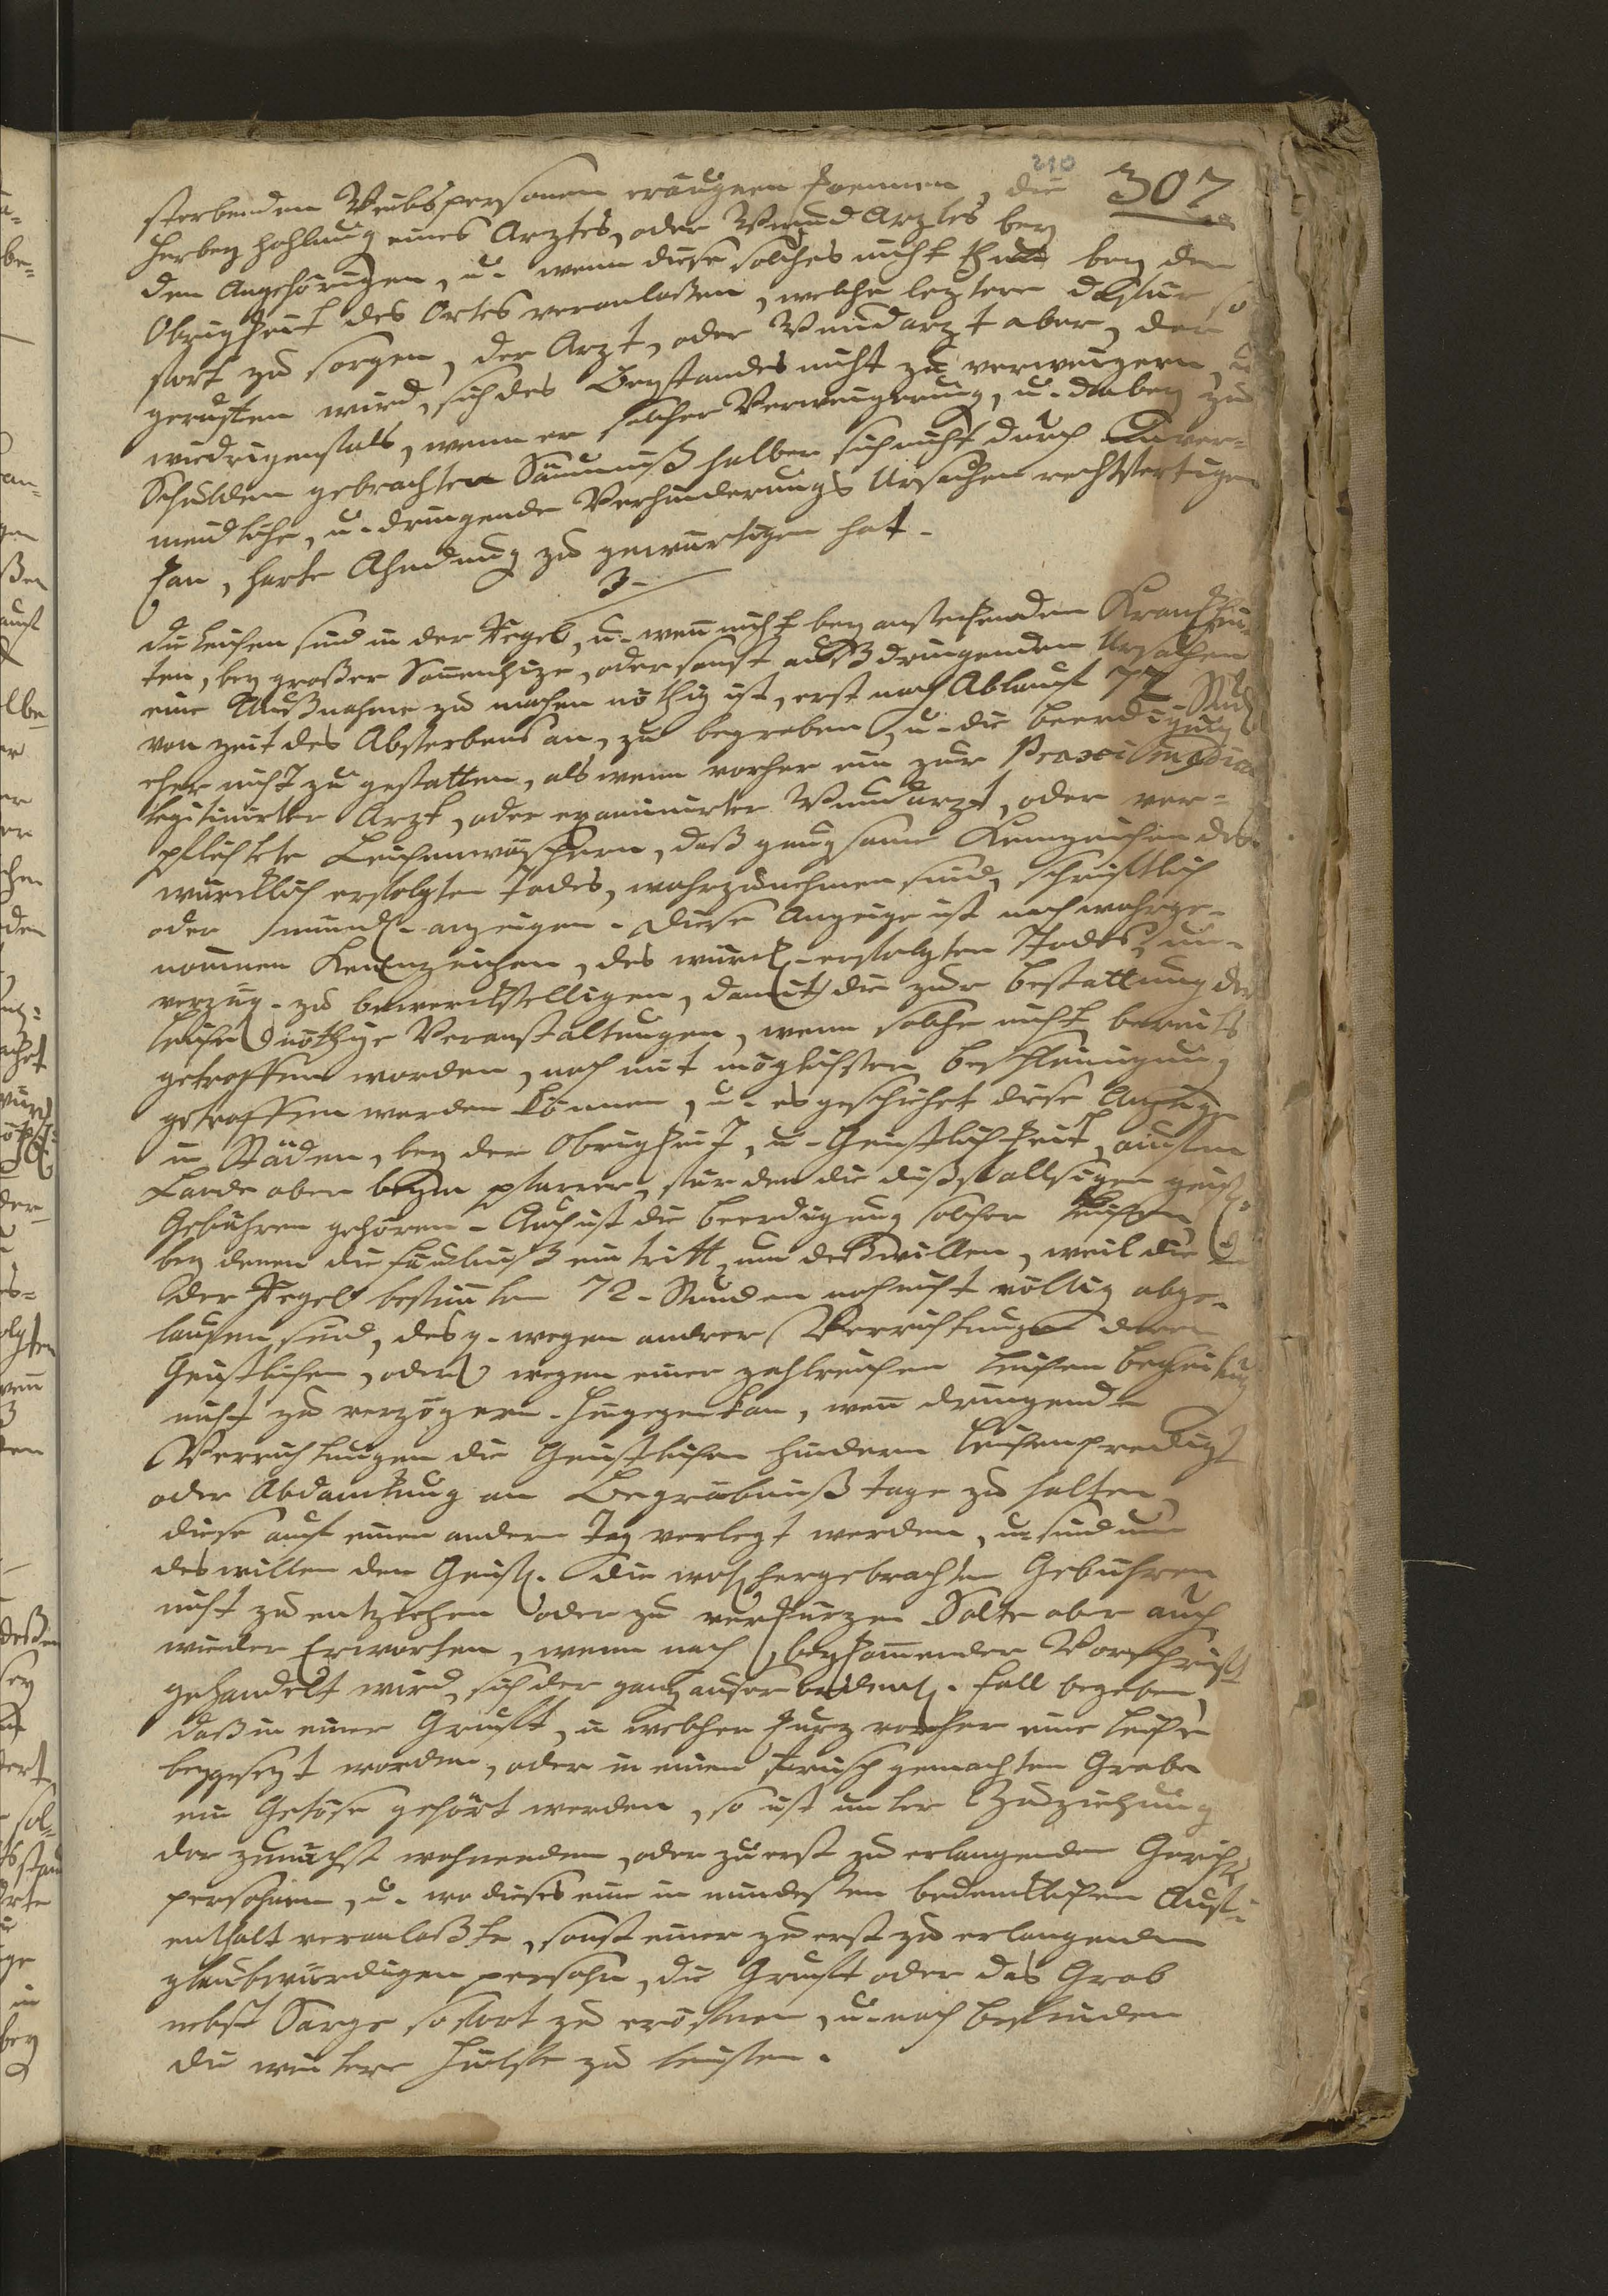 210
307
sterbenden Weibspersonen eräugnen koennen, die
Herbey hohlung eines Arztes, oder WundArztes bey
den Angehörigen, u. wenn diese solches nicht thun bey der
Obrigkeit des Ortes veranlaßen, welche leztere dafür so
fort zu sorgen, der Arzt, oder Wundarzt aber, der
gerufen wird, sich des Beystandes nicht zu verweigern, u
wiedrigenfals, wenn er solcher Verweigerung, u. dabey zu
Schulden gebrachten Säumniß halber sich nicht durch Unver=
meidliche, u. dringende Verhinderungs Ursachen rechtfertigen
kan, harte Ahndung zu gewartigen hat.
3.
die Leichen sind in der Regel, u. weñ nicht bey ansteckenden Krankhei=
ten, bey großer Soñenhize, oder sonst aus dringenden Ursachen
eine Außnahme zu machen nöthig ist, erst nach Ablauf 72 Stund
von zeit des Absterbens an, zu begraben, u. die beerdigung
eher nicht zu gestatten, als wenn vorher ein zur Praxi medica
legitimirter Arzt, oder examinirter Wundarzt, oder ver=
pflichtete Leichenwäschern, daß gnugsame Kenzeichen des
würcklich erfolgten Todes, wahrzunehmen sind, schriftlich
oder mündl. anzeigen. Diese Anzeige ist nach wahrge=
nommen Kennzeichen, des würckl. erfolgten Todes, un=
verzug. zu bewerckstelligen, damit die zur bestattung der
Leiche nöthige Veranstaltungen, wenn solche nicht bereits
getroffen worden, noch mit möglichster beschleunigung
getroffen werden können, u. es geschiehet diese Anzeige
in Städen, bey der Obrigkeit, u. Geistlichkeit, aufm
Lande aber beym pfarrer, für den die dißfallsigen geistl.
Gebühren gehören. Auch ist die beerdigung solcher Leichen,
bey denen die fäulniß eintritt, um deßwillen, weil die in
der Regel bestimten 72. Stunden noch nicht völlig abge=
laufen sind, desgl. wegen andrer Verrichtungen deren
Geistlichen, oder wegen einer zahlreichen Leichen begleitung
nicht zu verzögern. hingegen kan, weñ dringende
Verrichtungen die Geistlichen hindern Leichenpredigt
oder Abdankung am Begräbniß tage zu halten,
diese auf einen andern Tag verlegt werden, u. sind um
deswillen den Geistl. die wohlhergebrachten Gebühren
nicht zu entziehen oder zu verkürzen. Solte aber auch
wieder Erwarten, wenn nach beykomender Vorschrift
gehandelt wird, sich der ganz auserordentl. fall begeben,
daß in einer Gruft, in welcher kurz vorher eine Leiche
beygesezt worden, oder in einen frisch gemachten Grabe
ein Getöse gehört werden, so ist unter Zuziehung
der zunächst wohnenden, oder zuerst zu erlangenden Gerichts
persohnen, u. wo dieses ein in mindesten bedencklichen Auf=
enthalt veranlaßte, sonst einer zu erst zu erlangenden
glaubwürdigen persohn, die Gruft oder das Grab
nebst Sarge sofort zu eröfnen, u. nach befinden
die weitere Hülfe zu leisten.